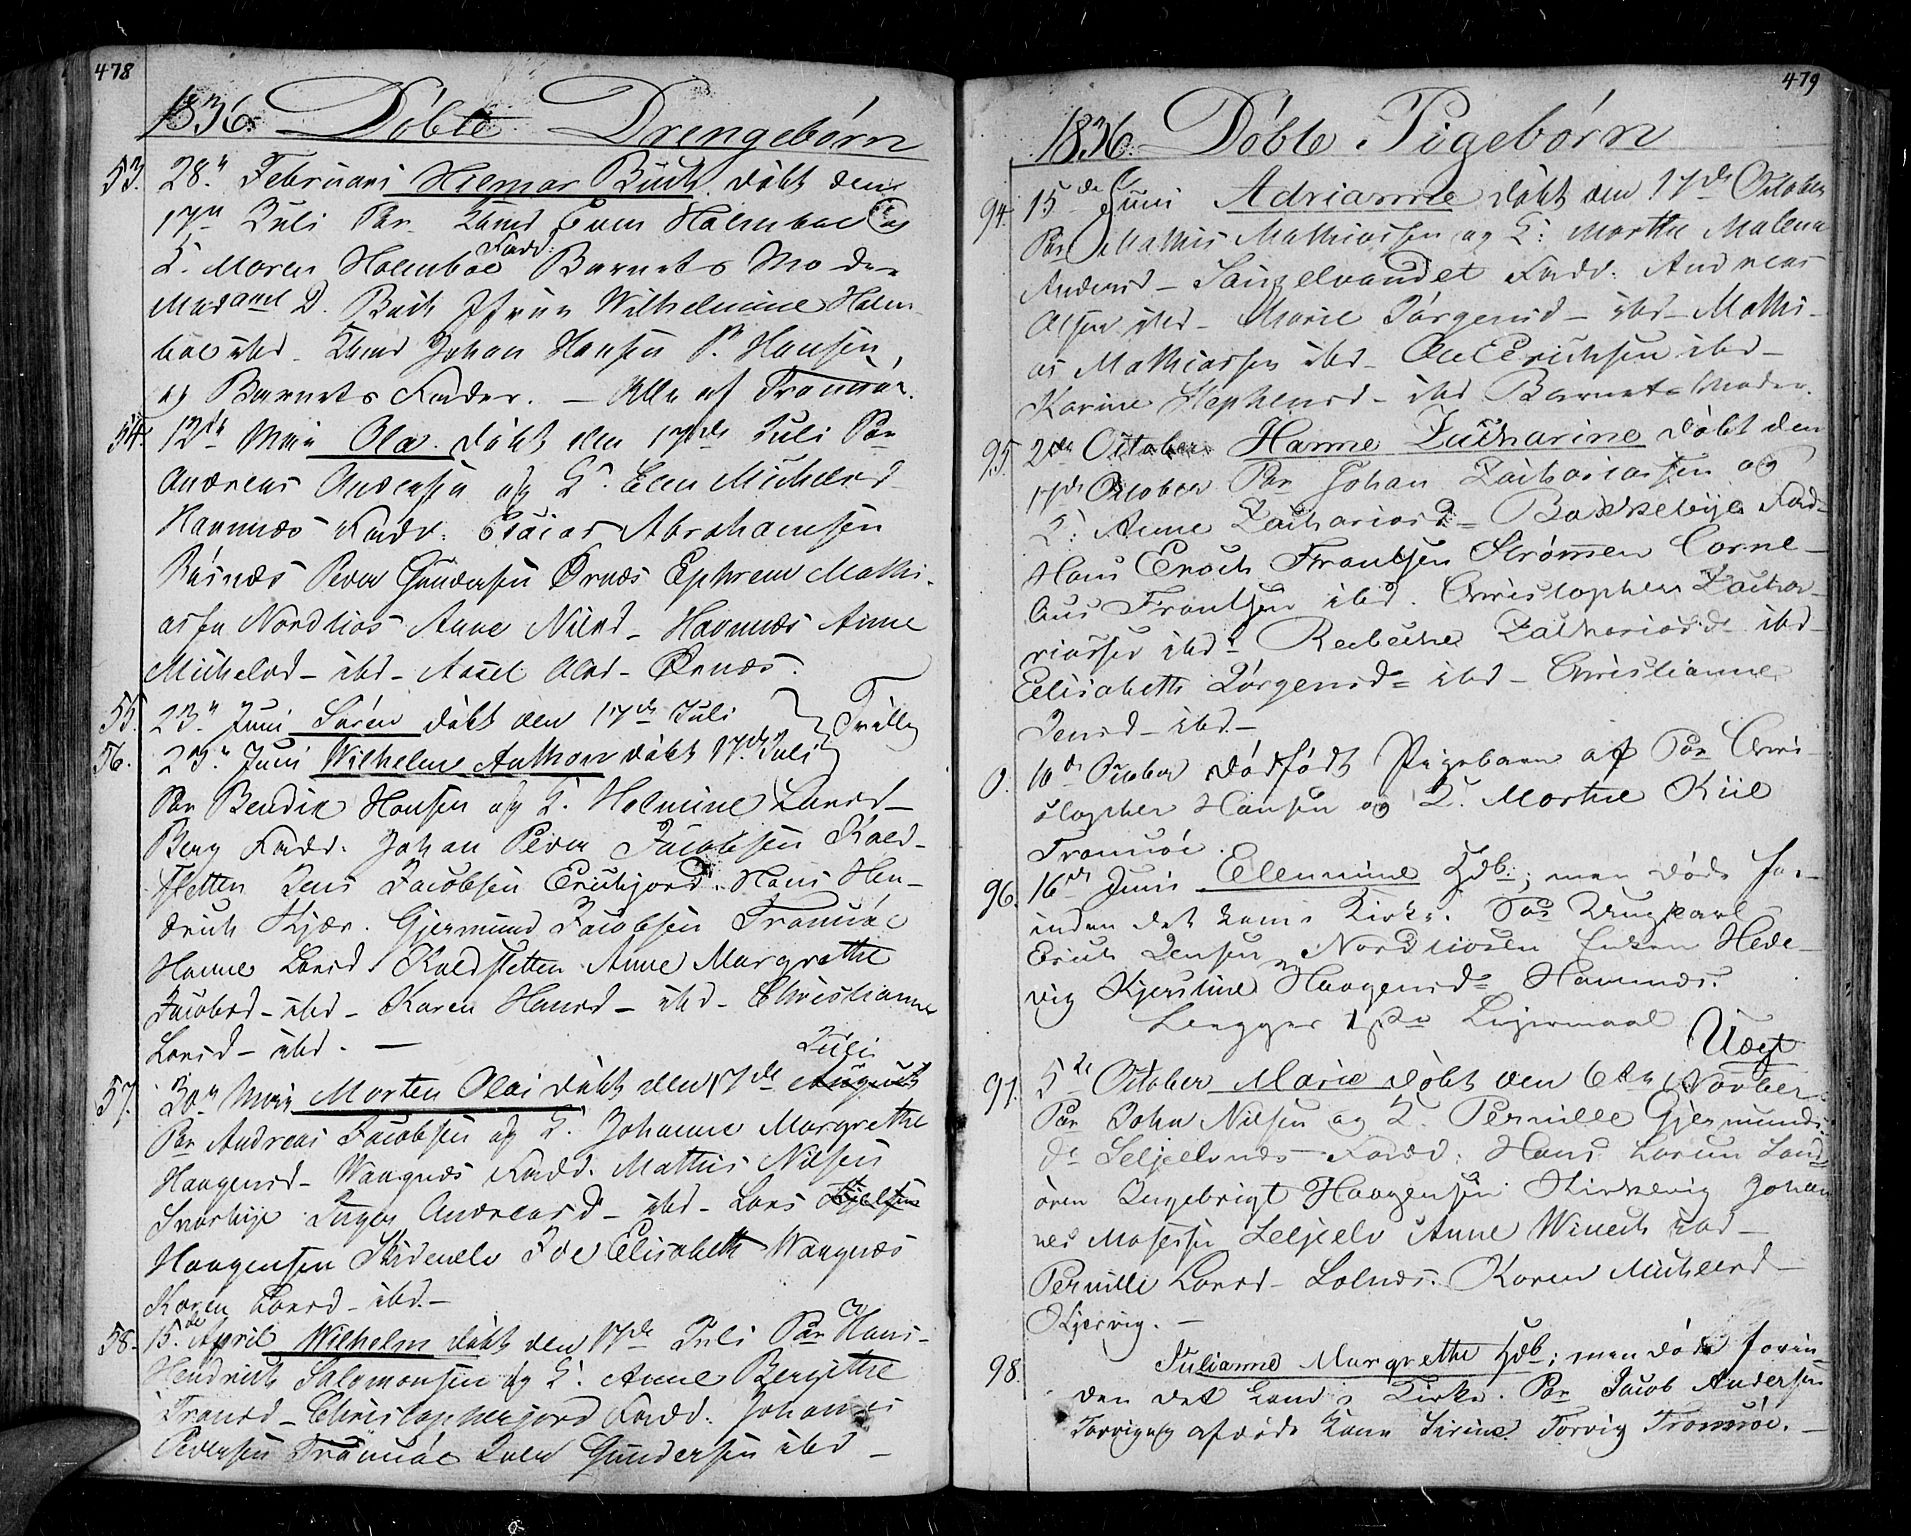 478
1836. Döbte Drengebørn
53. 28n Februari Hilmar Buch döbt den
17n Juli For. Even Holmboe og
K. Maren Holmboe Fadd: Barnets Moder
Madamel D. Buch Jfrue Wilhelmine Holm-
boe ibd Johan Hansen P. Hansen
og Barnets Fader. — Alle af Tromsøe.
54. 12te Mai Ola döbt den 17de Juli For
Andreas Andersen og K. Elen Michelsd
Havnnæs Fadd: Esaias Abrahamsen
Rasnæs Peder Gundersen Ørnæs Ephrem Mathi-
assen Nordkios Anne Nilsd – Havnnæs Anne
Michelsd – ibd – Axsel Olsd – Ørnæs.
55. 23n Juni Sören döbt den 17de Juli } Tvilling
56. 23n Juni Wilhelm Anthon döbt 17de Juli
For Bendix Hansen og K. Helmine Larsd –
Berg Fadd. Johan Peder Jacobsen Kald-
sletten Jens Jacobsen Erichjord Hans Hen-
drich Kjær. Gjermund Jacobsen Tromsøe
Hanne Larsd Kaldsletten Anne Margrethe
Jacobsd – ibd – Karen Hansd – ibd – Christianne
Larsd – ibd. —
Juli
57. 30n Mai Morten Olai döbt den 17de August
For Andreas Jacobsen og K. Johanne Margrethe
Haagensd – Waagnæs Fadd. Mathis Nilsen
Svarbye Inger Andreasd – ibd – Lars
Haagensen Skidenelv Elisabeth Waagnæs
Karen Larsd – ibd. –
58. 15de April Wilhelm döbt den 17de Juli For Hans
Hendrich Salomonsen og K. Anne Bergithe
Transd – Christopherjord Fadd. Johannes
Pedersen Tromsøe Gundersen ibd –
479
1836. Döbte Pigebørn
94. 15de Juni Adrianne döbt den 17de October
For Mathis Mathiassen og K: Marthe Malena
Andersd – Sandselvandet Fadd: Andreas
Olsen ibd – Marie Jørgensd – ibd – Mathi-
as Mathiassen ibd – Ole Erichsen ibd –
Karine Stephensd – ibd Barnets Moder.
95. 2de October Hanne Zacharine döbt den
17de October For Johan Zachariassen og
K: Anne Zachariasd – Bakkebye Fad-
Hans Enoch Frantsen Strømmen Corne-
lius Frantsen ibd. Christopher Zacha-
riassen ibd – Rebecke Zachariasd – ibd –
Elisabeth Jørgensd – ibd – Christianne
Jensd – ibd –
0. 10de October dödfödt Pigebarn af For Chri-
stopher Hansen og K. Marthe Kiil
Tromsøe.
96. 16de Juni Elenmine Hdb.; men döde for-
inden det kom i Kirke. For Ungkarl
Erich Jensen Nordkiosen Enken Hede-
vig Kjerstine Haagensd – Havnnæs.
Begges 1ste Leiermaal Uægt
97. 5te October Marie döbt den 6te November
For John Nilsen og K. Pernille Gjermunds-
dr Seljeelvnæs Fadd: Hans Larsen Sand-
ören Ingebrigt Haagensen Kirkevig Johan
nes Mosesen Seljeelv Anne Winech ibd –
Pernille Larsd – Solnæs. Karen Michelsd –
Kjosvig. –
98. Julianne Margrethe Hdb.; men döde forin-
den det kom i Kirke. For Jacob Andersen
Torvig og afdöde Kone Sirine Torvig Tromsøe. –